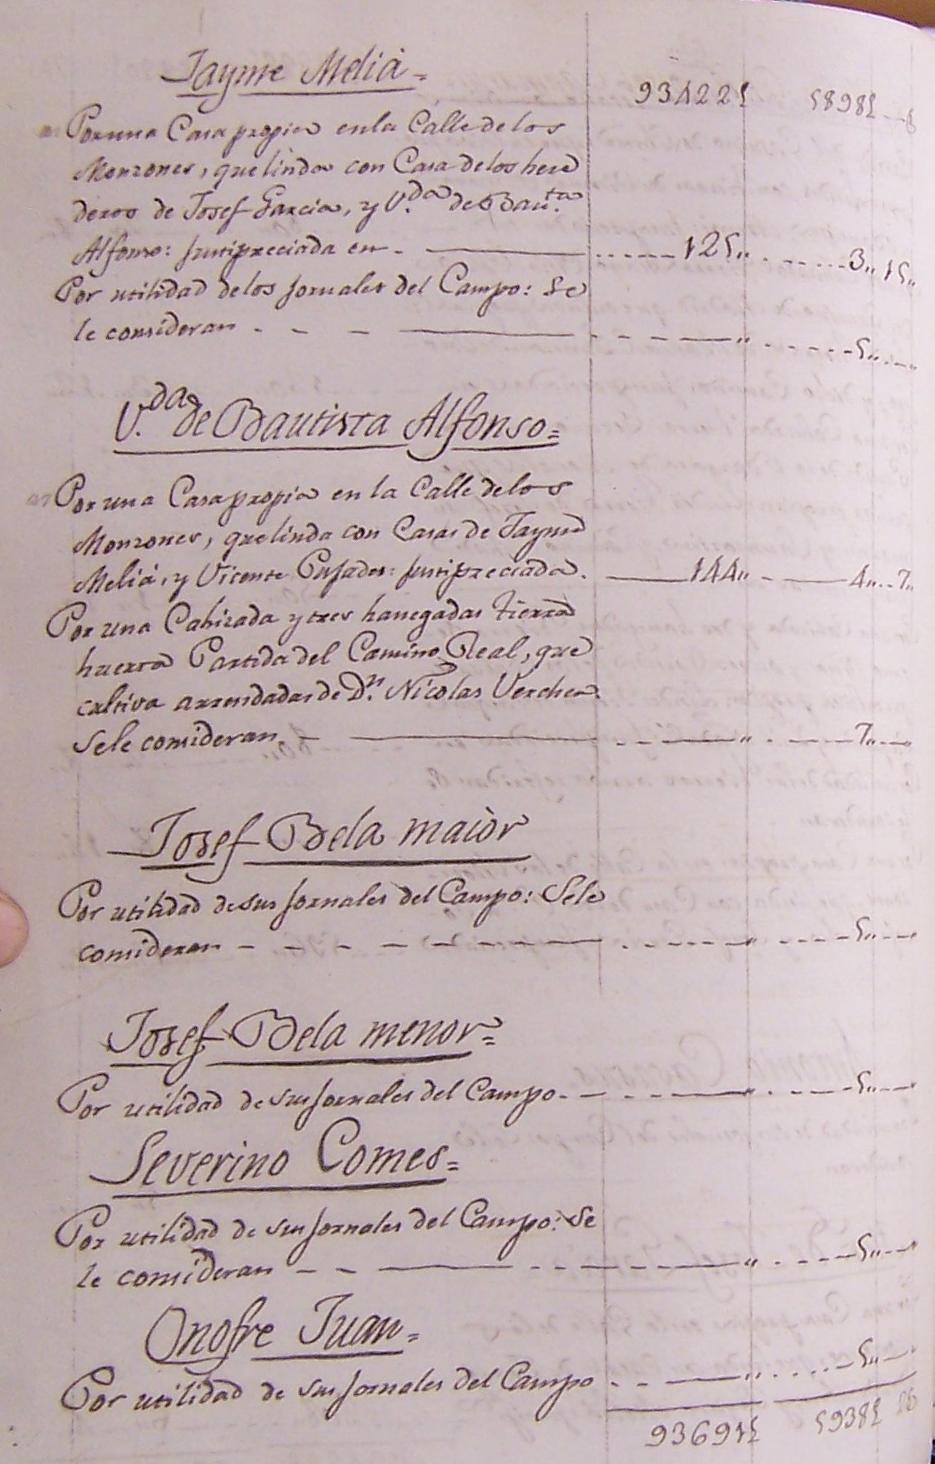 Jayme Meliá =
93422£ 5898£
Por una Casa propia en la Calle de los
Monzones, que linda con Casa de los here
deros de Josef Garcia, y V.da de Bau.ta
Alfonso: justipreciada en - 125,, 3,, 15,,
Por utilidad de los jornales del Campo: Se
le consideran - - - ,, 5,,
V.da de Bautista Alfonso =
Por una Casa propia en la Calle de los
Monzones, que linda con Casas de Jayme
Meliá, y Vicente Pusades: justipreciada. 144,, 4,, 7,,
Por una Cahizada y tres hanegadas tierra
huerta Partida del Camino Real, que
cultiva arrendadas de D.n Nicolas Vercher
Se le consideran - ,, 7,,
Josef Bela maior
Por utilidad de sus jornales del Campo: Se le
consideran - - - ,, 5,,
Josef Bela menor =
Por utilidad de sus jornales del Campo - ,, 5,,
Severino Comes =
Por utilidad de sus jornales del Campo: Se
le consideran - - ,, 5,,
Onofre Juan =
Por utilidad de sus jornales del Campo ,, 5,,
93691£ 5938£